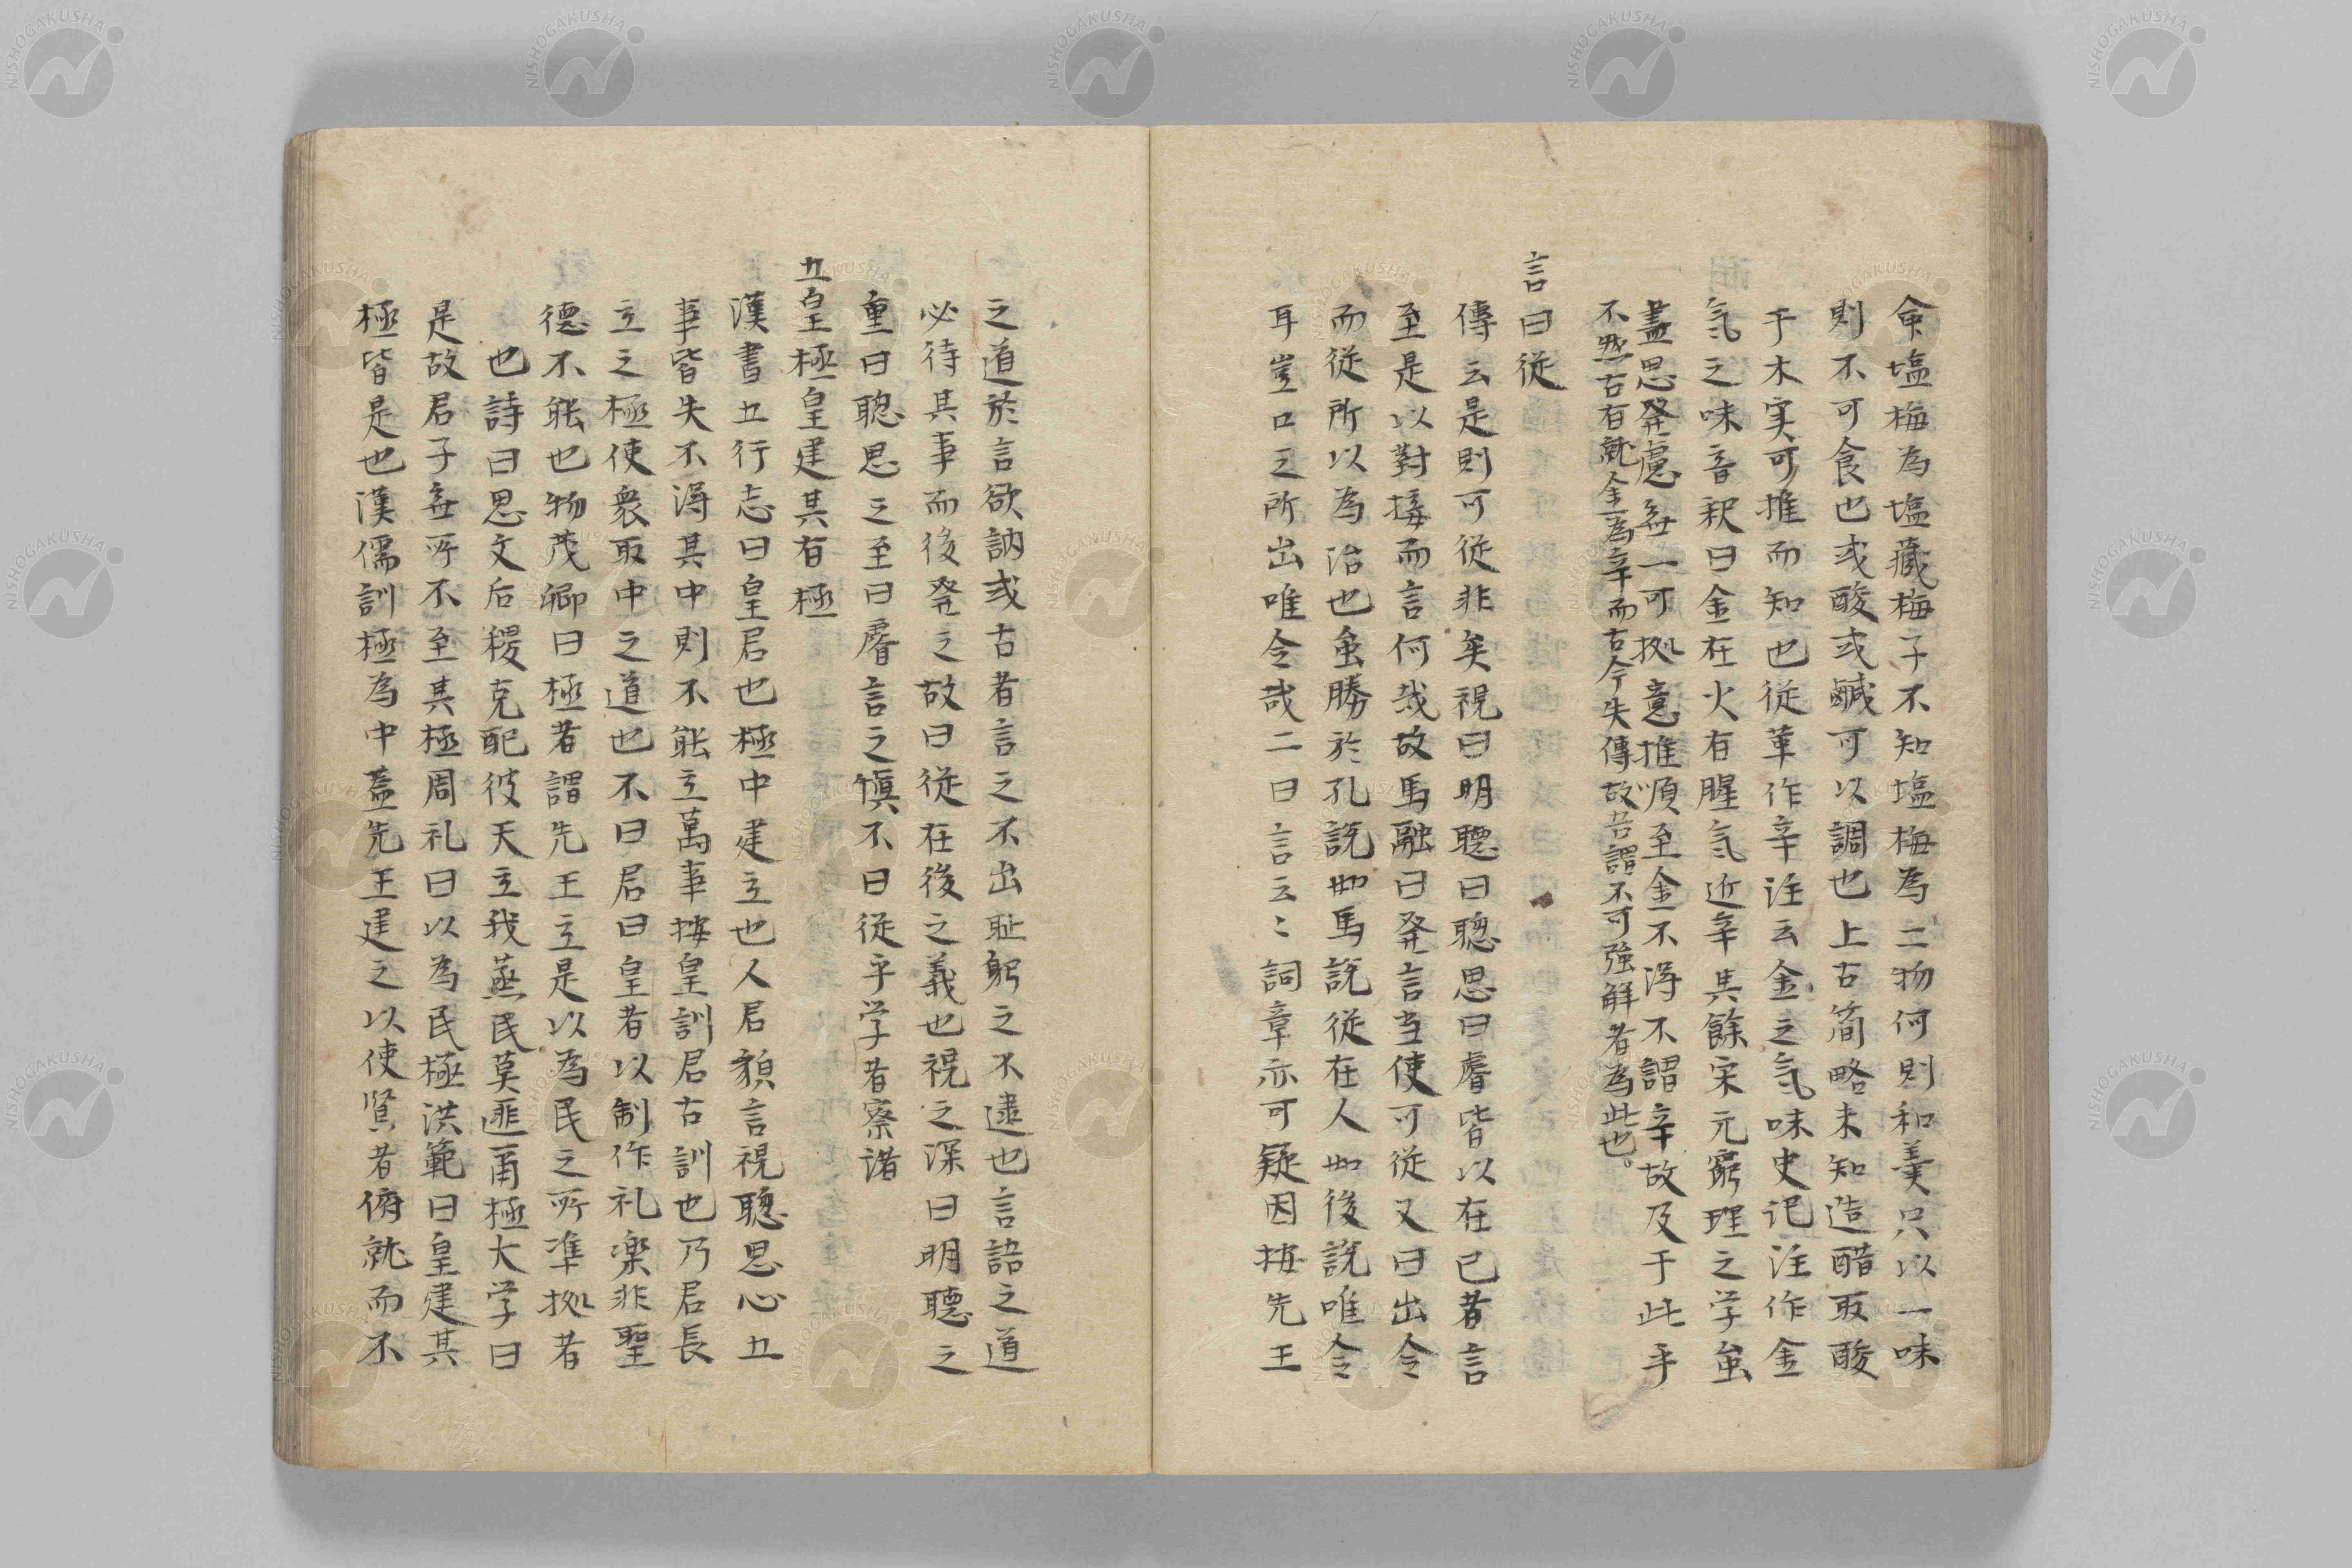 命塩梅為塩蔵梅子不知塩梅為二物何則和羹只以一味
則不可食也或酸或鹹可以調也上古簡略未知造醋取酸
于木実可推而知也従革作辛注云金之気味史記注作金
気之味音釈曰金在火有腥気近辛其餘宋元窮理之学虽
盡思発慮無一可拠意推順至金不得不謂辛故及于此乎
不然古有就金為辛而古今失傳故吾謂不可強解者為此也。
言曰従
傳云是則可従非矣視曰明聴曰聰思曰睿皆以在己者言
至是以對接而言何哉故馬融曰発言当使可従又曰出令
而従所以為治也虽勝於孔説如馬説従在人如後説唯令
耳豈口之所出唯令哉二曰言云〻詞章亦可疑因按先王
之道於言欲訥或古者言之不出耻躬之不逮也言語之道
必待其事而後発之故曰従在後之義也視之深曰明聴之
重曰聰思之至曰睿言之慎不曰従乎学者察諸
五皇極皇建其有極
漢書五行志曰皇君也極中建立也人君貌言視聰思心五
事皆失不得其中則不能立萬事按皇訓君古訓也乃君長
立之極使衆取中之道也不曰君曰皇者以制作礼楽非聖
德不能也物茂卿曰極者謂先王立是以為民之所準拠者
也詩曰思文后稷克配彼天立我蒸民莫匪甫極大学曰
是故君子無所不至其極周礼曰以為民極洪範曰皇建其
極皆是也漢儒訓極為中蓋先王建之以使賢者俯就而不
NISHOGAKUSHA